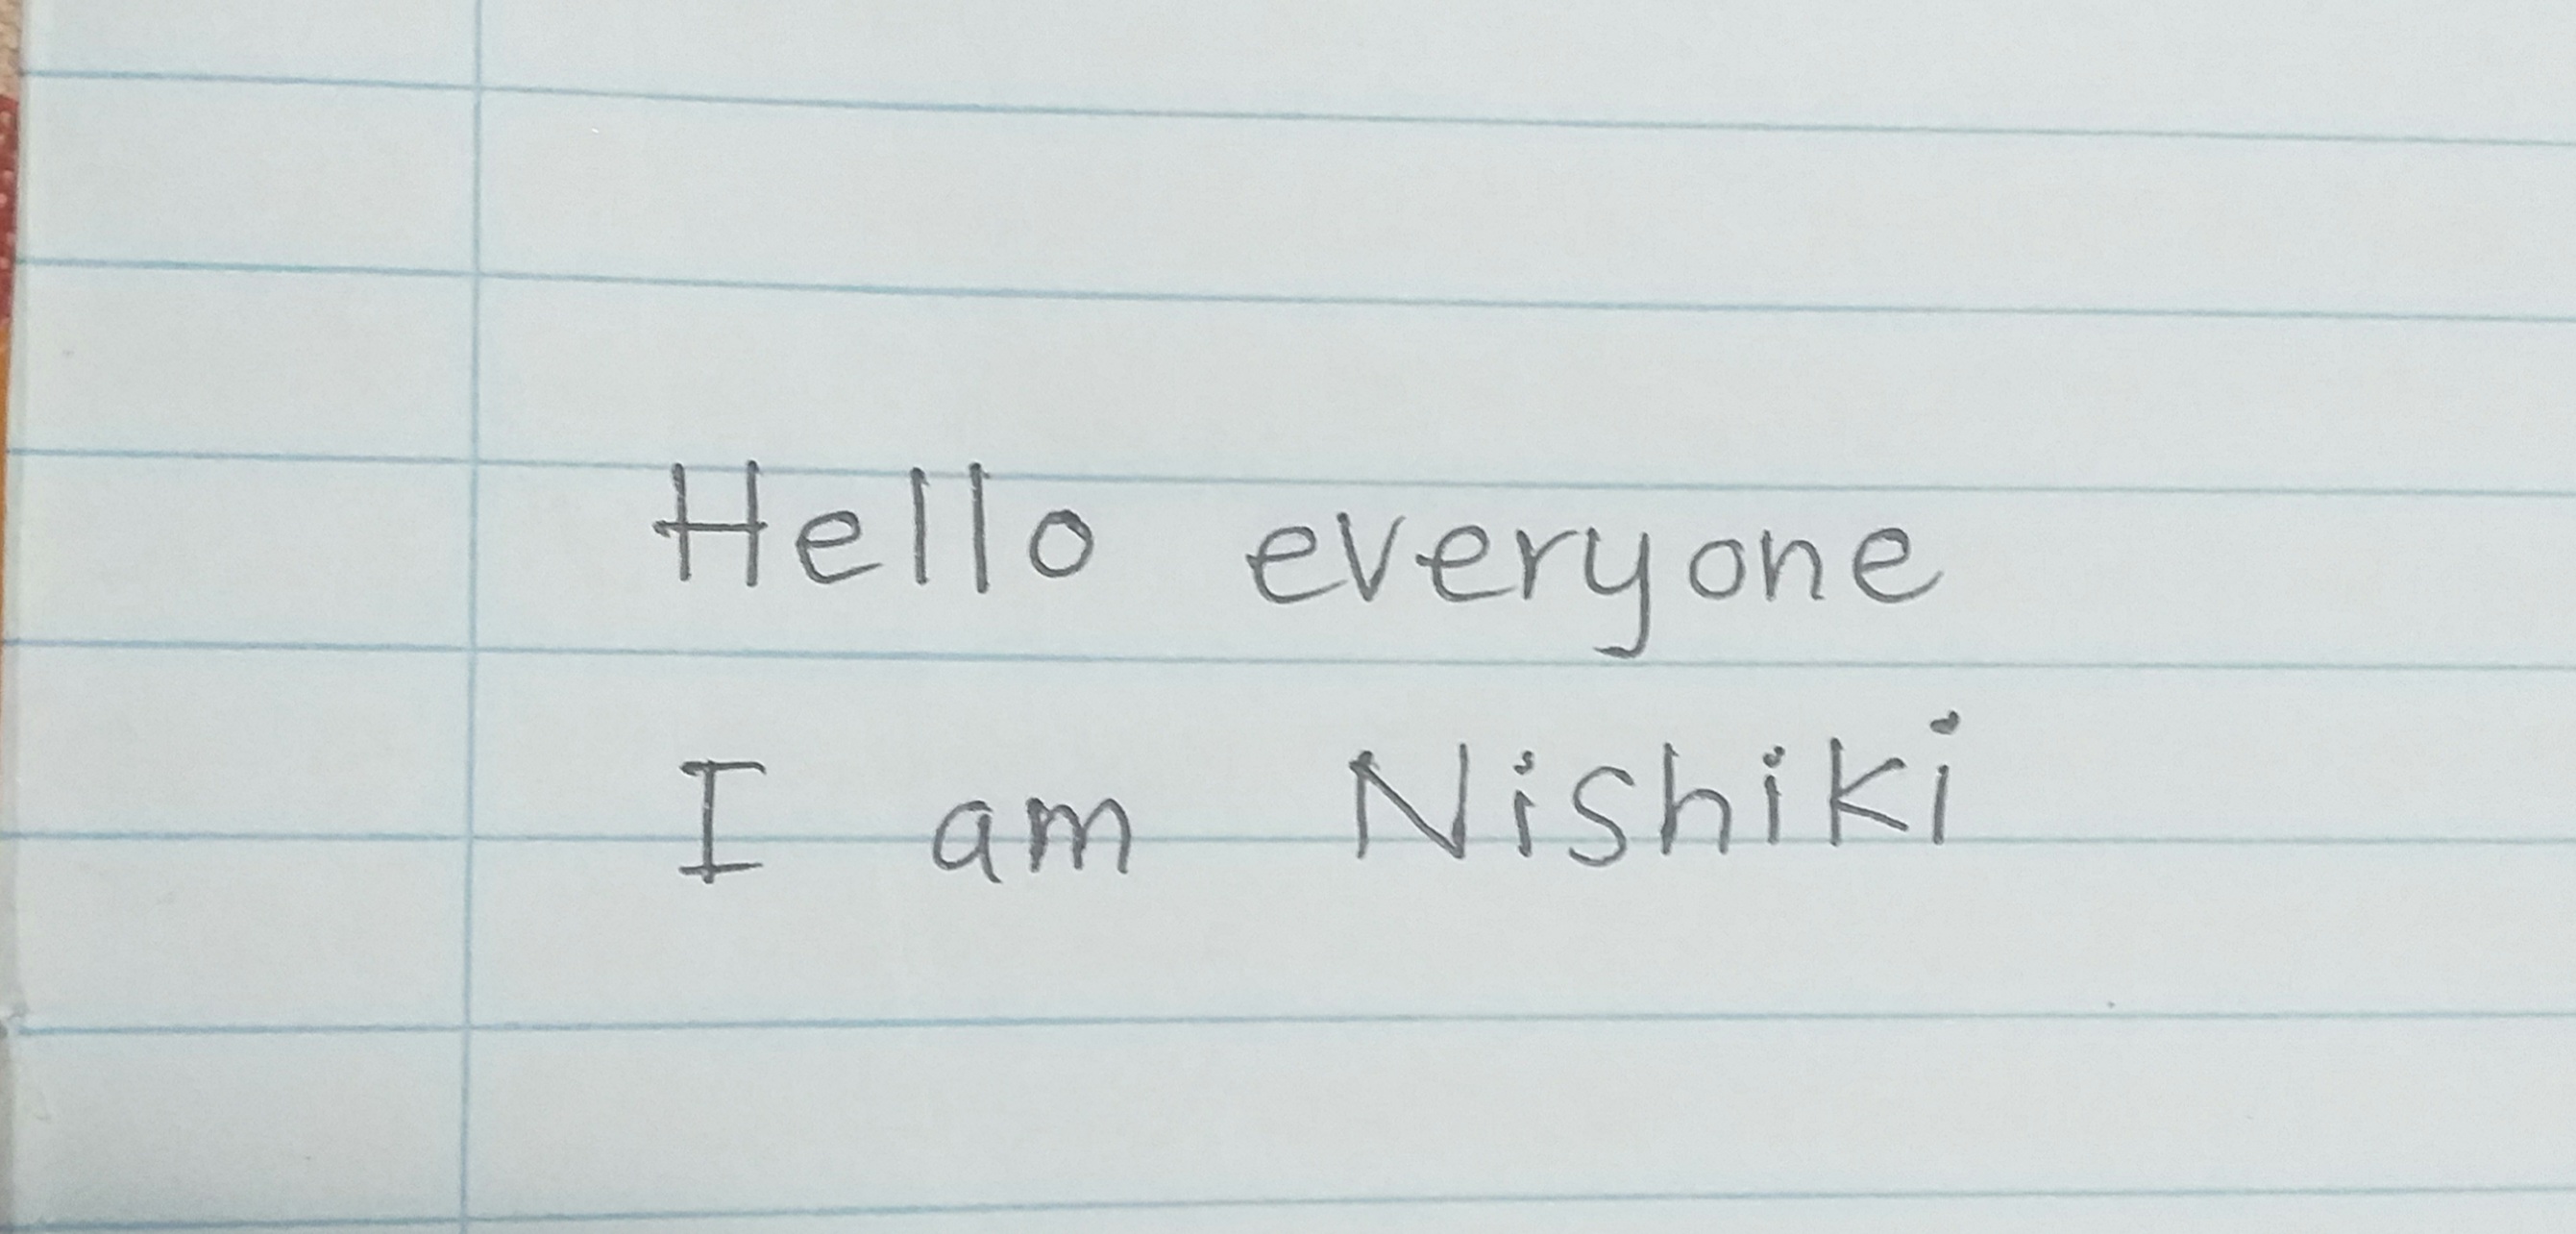 Hello everyone
I am Nishiki